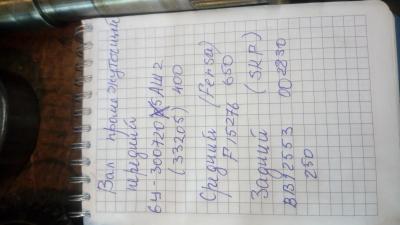 Вал промежуточный
передний
6У-300720 АШ2
(33205) 400
Средний (Fersa)
F15276 650
Задний (SKF)
BB12553 002830
250